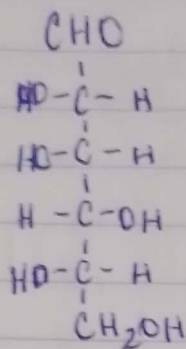 CHO
HO-C-H
HO-C-H
H-C-OH
HO-C-H
CH₂OH